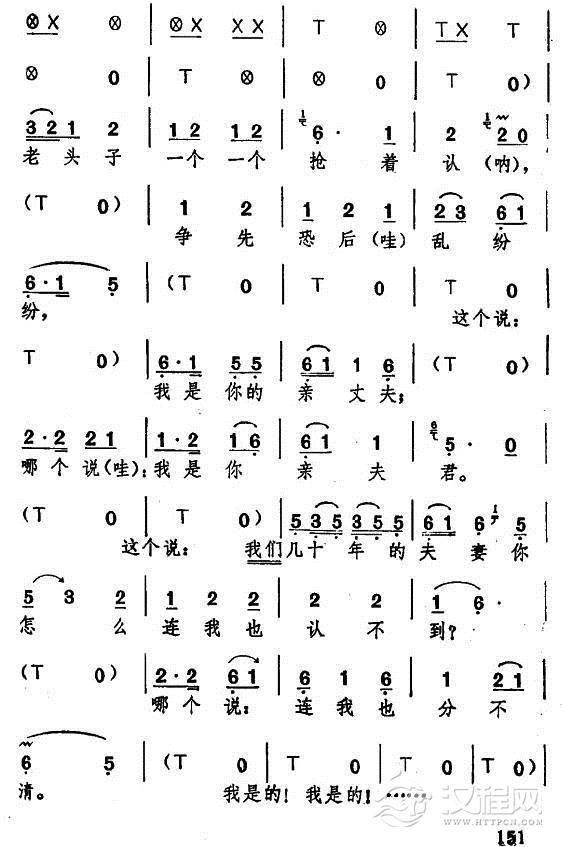 ⊗ X | ⊗ X X X | T ⊗ | T X T |
⊗ 0 | T ⊗ | ⊗ 0 | T 0) |
3 2 1 2 | 1 2 1 2 | 6 · 1 | 2 2 0 |
老 头 子 一 个 一 个 抢 着 认 (呐),
(T 0) | 1 2 | 1 2 1 | 2 3 6 1 |
争 先 恐 后 (哇) 乱 纷
6 · 1 5 | (T 0 | T 0 | T 0 |
纷, 这个说:
T 0) | 6 · 1 5 5 | 6 1 1 6 | (T 0) |
我 是 你 的 亲 丈 夫;
2 · 2 2 1 | 1 · 2 1 6 | 6 1 1 | 5 · 0 |
哪 个 说 (哇): 我 是 你 亲 夫 君。
(T 0 | T 0) | 5 3 5 3 5 5 | 6 1 6 5 |
这个说: 我们几十年的夫妻你
5 3 2 | 1 2 2 | 2 2 | 1 6 · |
怎 么 连 我 也 认 不 到?
(T 0) | 2 · 2 6 1 | 6 1 6 | 1 2 1 |
哪 个 说: 连 我 也 分 不
6 5 | (T 0 | T 0 | T 0 | T 0) |
清。 我是的! 我是的! ……
汉程网
HTTPCN.COM
151